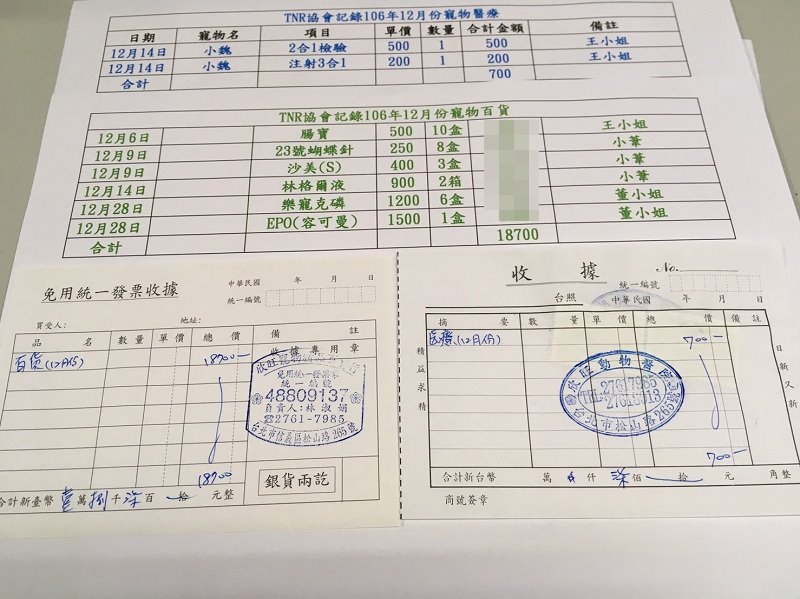 TNR協會記錄106年12月份寵物醫療
日期 寵物名 項目 單價 數量 合計金額 備註
12月14日 小魏 2合1檢驗 500 1 500 王小姐
12月14日 小魏 注射3合1 200 1 200 王小姐
合計 700
TNR協會記錄106年12月份寵物百貨
12月6日 腸寶 500 10盒 王小姐
12月9日 23號蝴蝶針 250 8盒 小葦
12月9日 沙美(S) 400 3盒 小葦
12月14日 林格爾液 900 2箱 小葦
12月28日 樂寵克磷 1200 6盒 董小姐
12月28日 EPO(容可曼) 1500 1盒 董小姐
合計 18700
免用統一發票收據
中華民國 年 月 日
統一編號
買受人:
地址:
品名 數量 單價 總價 備註
百貨(12月份) 18700-
收據專用章
免用統一發票
統一編號
48809137
負責人:林淑娟
☎2761-7985
台北市信義區松山路265號
18700
銀貨兩訖
合計新臺幣 壹萬捌千柒百 拾 元整
收據
No.
統一編號
台照 中華民國 年 月 日
摘要 數量 單價 總價 備註
医療(12月份) 700-
精益求精
日新又新
欣旺動物醫院
TEL:27617985
台北市松山路265號
700-
合計新台幣 萬 仟 柒佰 拾 元 角整
商號簽章